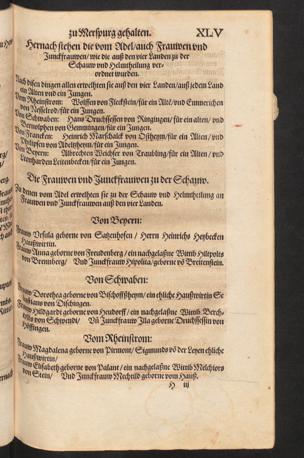 zu Merspurg gehalten. XLV
Hernach stehen die vom Adel/auch Frauwen vnd
Junckfrauwen/ wie die auß den vier Landen zu der
Schauw vnd Helmtheilung ver-
ordnet wurden.
Nach disen dingen allen erwehlten sie auß den vier Landen/auß jedem Land
ein Alten vnd ein Jungen.
Vom Rheinstrom: Wolffen von Fleckstein/für ein Alt/ vnd Emmerichen
von Nesselrod/für ein Jungen.
Von Schwaben: Hans Druchsessen von Ringingen/ für ein alten/ vnd
von Gemmingen/für ein Jungen.
Von Francken: Heinrich Marschalck von Ostheym/für ein Alten/ vnd
Philipsen von Adeltzheym/für ein Jungen.
Von Beyern: Albrechten Weichser von Traubling/für ein Alten/ vnd
Lienharden Leitenbecken/für ein Jungen.
Die Frauwen vnd Junckfrauwen zu der Schauw.
Zu denen vom Adel erwelhten sie zu der Schauw vnd Helmtheilung an
Frauwen vnd Junckfrauwen auß den vier Landen.
Von Beyern:
Frauw Ursula geborne von Satzenhofen/ Herrn Heinrichs
Haußwirtin.
Frauw Anna geborne von Freudenberg/ ein nachgelaßne Wittib
von Vnd Junckfrauw Hipolita/geborne võ Breitenstein.
Von Schwaben:
Frauw Dorothea geborne von Bischoffßheym/ein ehliche Haußwirtin
von
Frauw Hildgard geborne von Heudorff/ ein nachgelaßne Wittib
von Schwendi/ Vñ Junckfrauw Illa geborne Druchsessin von
Höffingen.
Vom Rheinstrom:
Frauw Magdalena geborne von Pirmont/ Sigmunds võ der Leyen ehliche
Haußwirtin/
Frauw Elisabeth geborne von Palant/ ein nachgelaßne Wittib Melchiors
von Stein/ Vnd Junckfrauw Mechtild geborne vom Hauß.
H iij